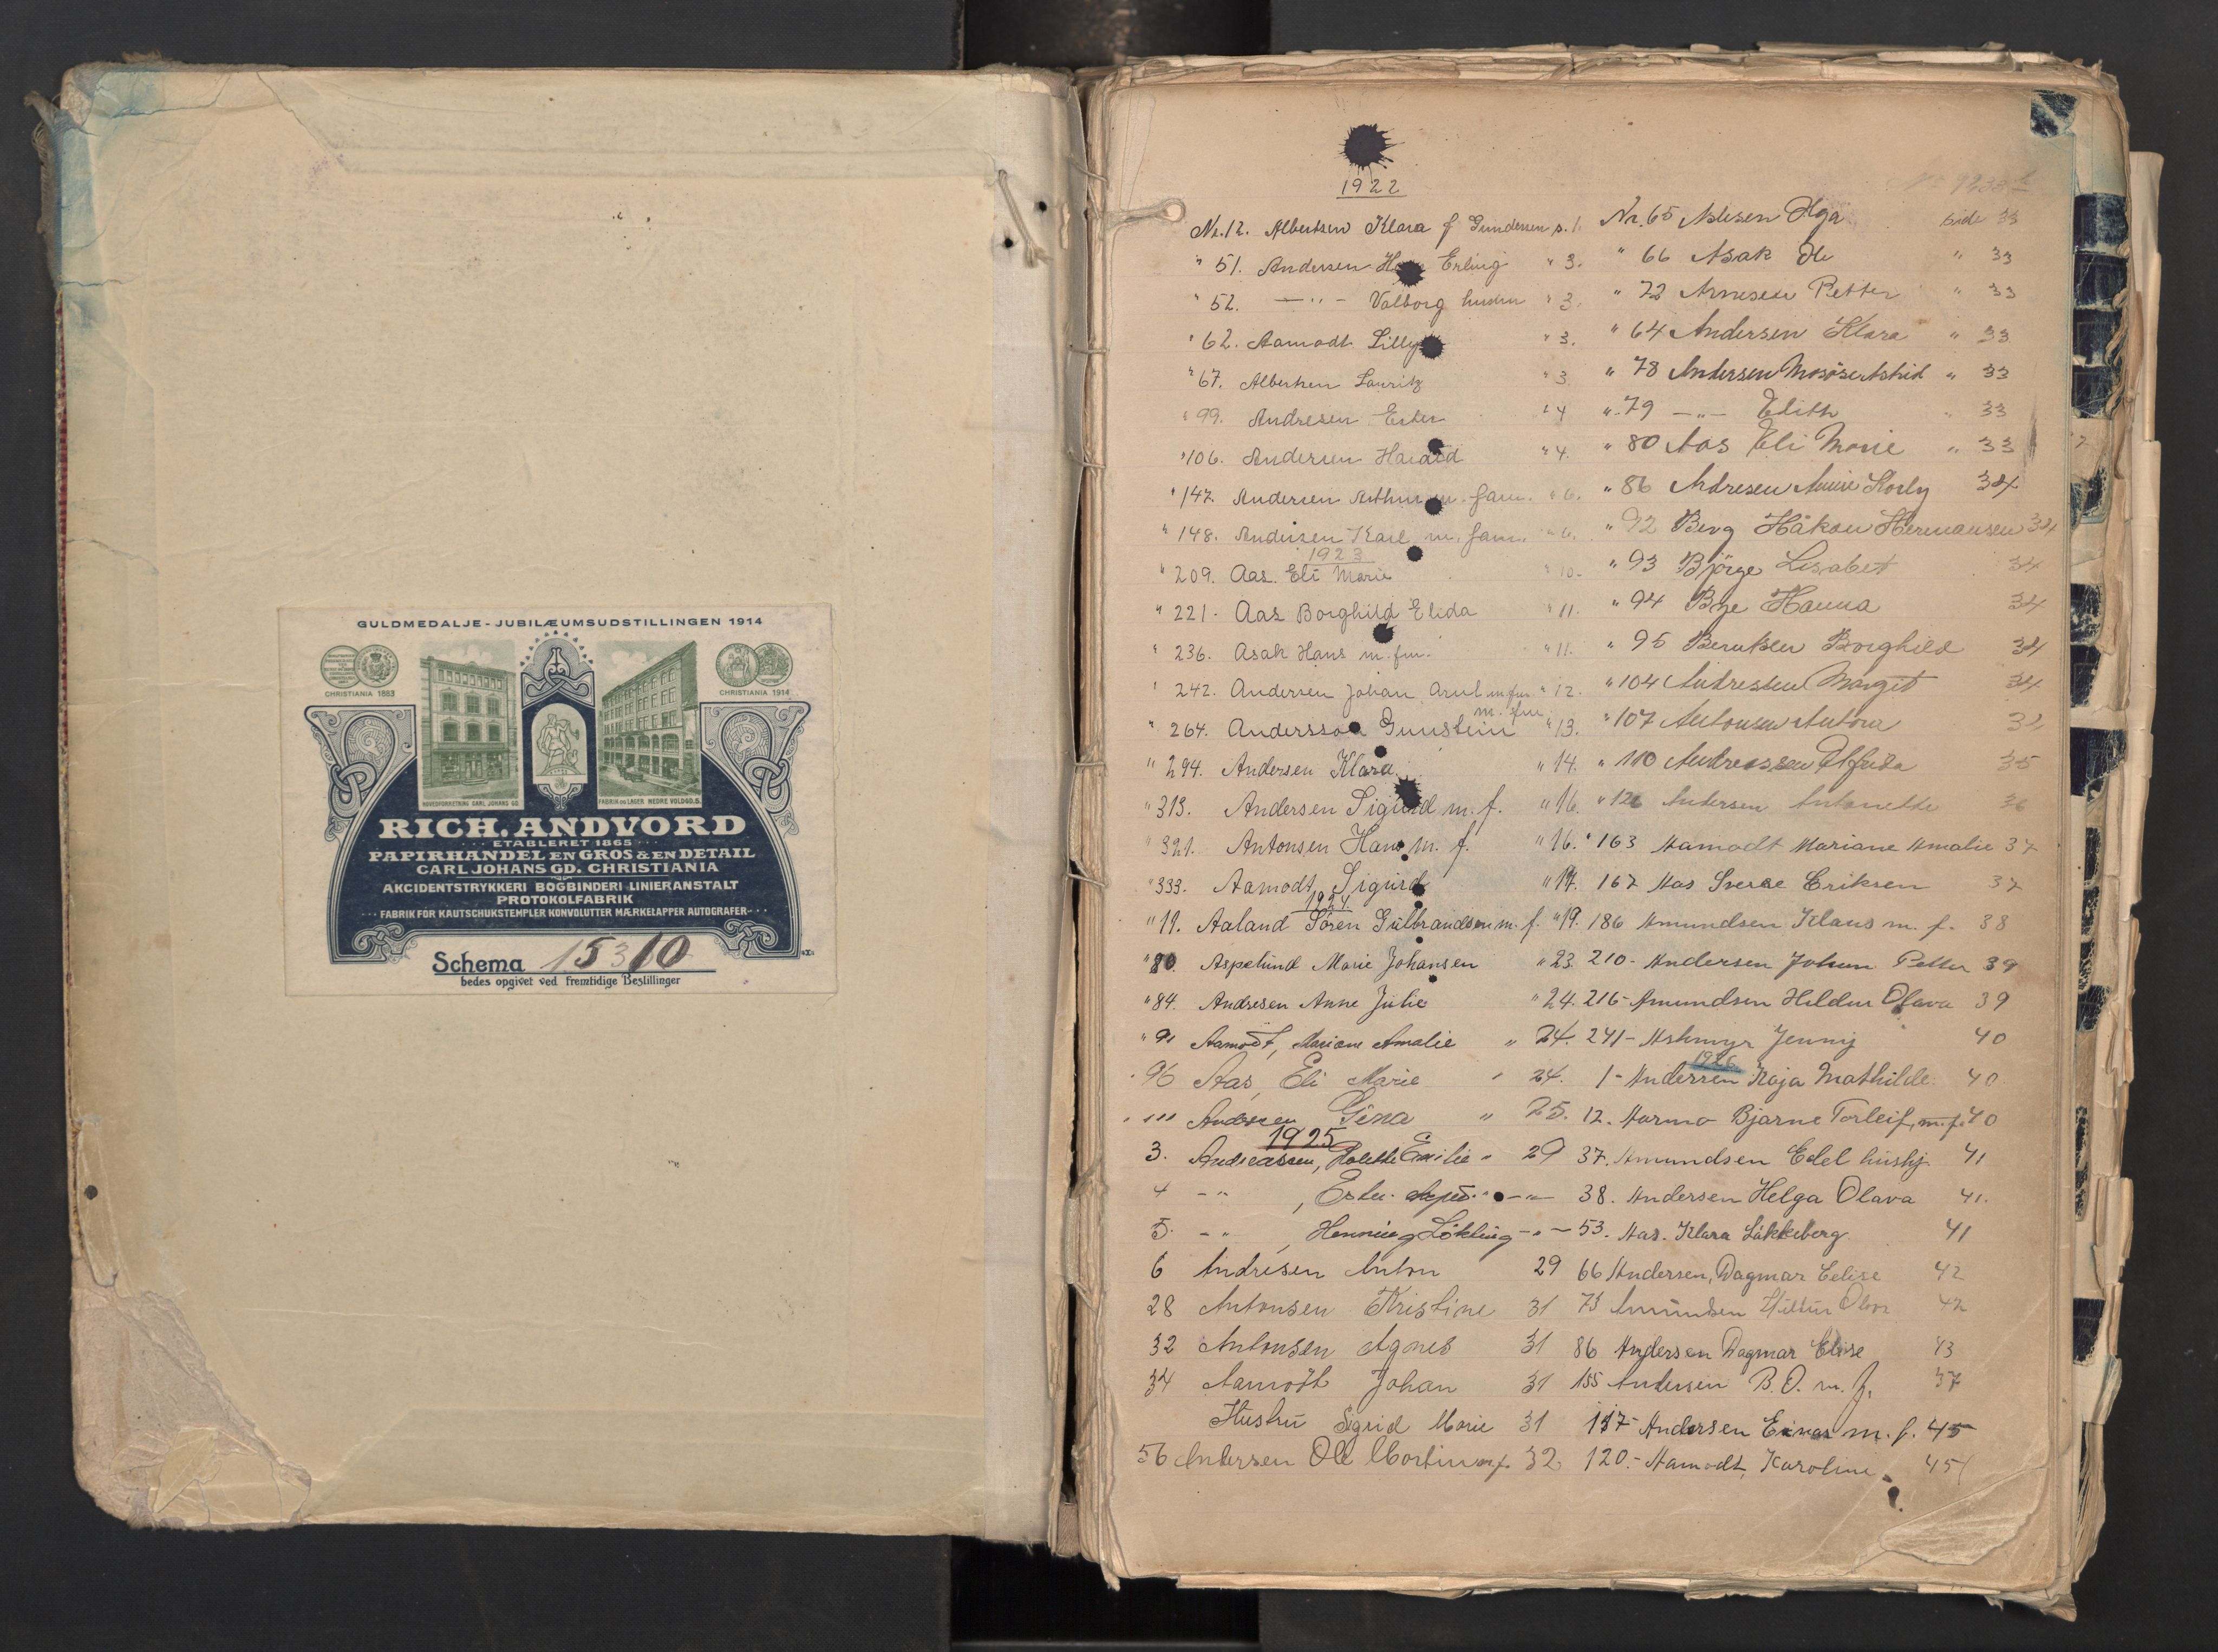 GULDMEDALJE - JUBILÆUMSUDSTILLINGEN 1914
CHRISTIANIA 1883
CHRISTIANIA 1914
HOVEDFORRETNING CARL JOHANS GD.
FABRIK OG LAGER NEDRE VOLDGD. 8.
RICH. ANDVORD
ETABLERET 1865
PAPIRHANDEL EN GROS & EN DETAIL
CARL JOHANS GD. CHRISTIANIA
AKCIDENTSTRYKKERI BOGBINDERI LINIERANSTALT
PROTOKOLFABRIK
FABRIK FOR KAUTSCHUKSTEMPLER KONVOLUTTER MÆRKELAPPER AUTOGRAFER
Schema 15310
bedes opgivet ved fremtidige Bestillinger
1922
Nr. 12. Albertsen Klara f Gundersen s. 1.
" 51. Andersen Erling " 3.
" 52. — " — Valborg hustru " 3.
" 62. Aamodt Lilly " 3.
" 67. Albertsen Lauritz " 3
" 99. Andresen Ester " 4
" 106. Andersen Harald " 4.
" 147. Andersen Arthur m. fam. " 6.
" 148. Andersen Karl m. fam. " 6.
1923
" 209. Aas. Eli Marie " 10.
" 221. Aas Borghild Elida " 11.
" 236. Asak Hans m. fm. " 11.
" 242. Andersen Johan Arnt m. fm. " 12.
" 264. Andersson Gunstein m. fm. " 13.
" 294. Andersen Klara. " 14.
" 313. Andersen Sigurd m. f. " 16.
" 321. Antonsen Hans m. f. " 16.
" 333. Aamodt, Sigurd " 17.
1924.
" 11. Aaland Sören Gulbrandsen m. f. " 19.
" 80. Aspelund Marie Johansen " 23.
" 84. Andresen Anne Julie " 24.
" 91 Aamodt, Mariane Amalie " 24.
" 96 Aas, Eli Marie " 24.
" 111 Andresen Gina " 25.
1925
3. Andreassen, Emilie " 29
4 — " — , Ester — " —
5. — " — , Henning — " —
6 Andresen Anton 29
28 Antonsen Kristine 31
32 Antonsen Agnes 31
34 Aamodt Johan 31
Hustru Sigrid Marie 31
56 Andersen Ole Martin m. f. 32
Nr. 65 Olga Side 33
" 66 Asak Ole " 33
" 72 Arnesen Petter " 33
" 64 Andersen Klara " 33
" 78 Andersen Astrid " 33
" 79 — " — Edith " 33
" 80 Aas Eli Marie " 33
" 86 Andresen 34
" 92 Berg Håkon Hermansen 34
" 93 Bjørge Lisabet 34
" 94 Bye Hanna 34
" 95 Berntsen Borghild 34
" 104 Andresen Margit 34
" 107 Antonsen Antora
" 110 Andreassen Alfrida 35
" 126 Andersen Antonette 36
" 163 Aamodt Mariane Amalie 37
167 Aas Sverre Eriksen 37
186 Amundsen Klaus m. f. 38
210 - Andersen Johan Petter 39
216 - Amundsen Hildur Olava 39
241 - Askmyr Jenny 40
1926
1 - Andersen Kaja Mathilde. 40
12. Aarmo Bjarne Torleif, m. f. 40
37. Amundsen Edel hushj. 41
38. Andersen Helga Olava 41.
53. Aas. Klara Låkkeberg 41
66 Andersen, Dagmar Eelise 42
73 Amundsen Hildur Olava 42
86 Andersen Dagmar Elise 43
155 Andersen B. O. m. f. 37
117 - Andersen Einar m. f. 45
120. - Aamodt, Karoline 45